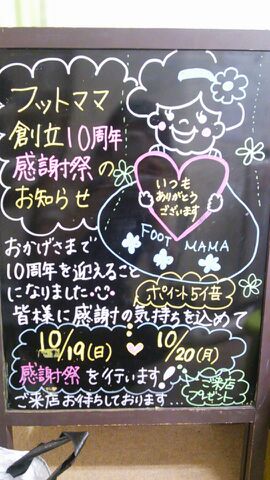 フットママ
創立10周年
感謝祭の
お知らせ
いつも
ありがとう
ございます
FOOT MAMA
おかげさまで
10周年を迎えること
になりました
ポイント5倍
皆様に感謝の気持ちを込めて
10/19(日) 10/20(月)
感謝祭を行います!
ご来店
プレゼント
ご来店お待ちしております...